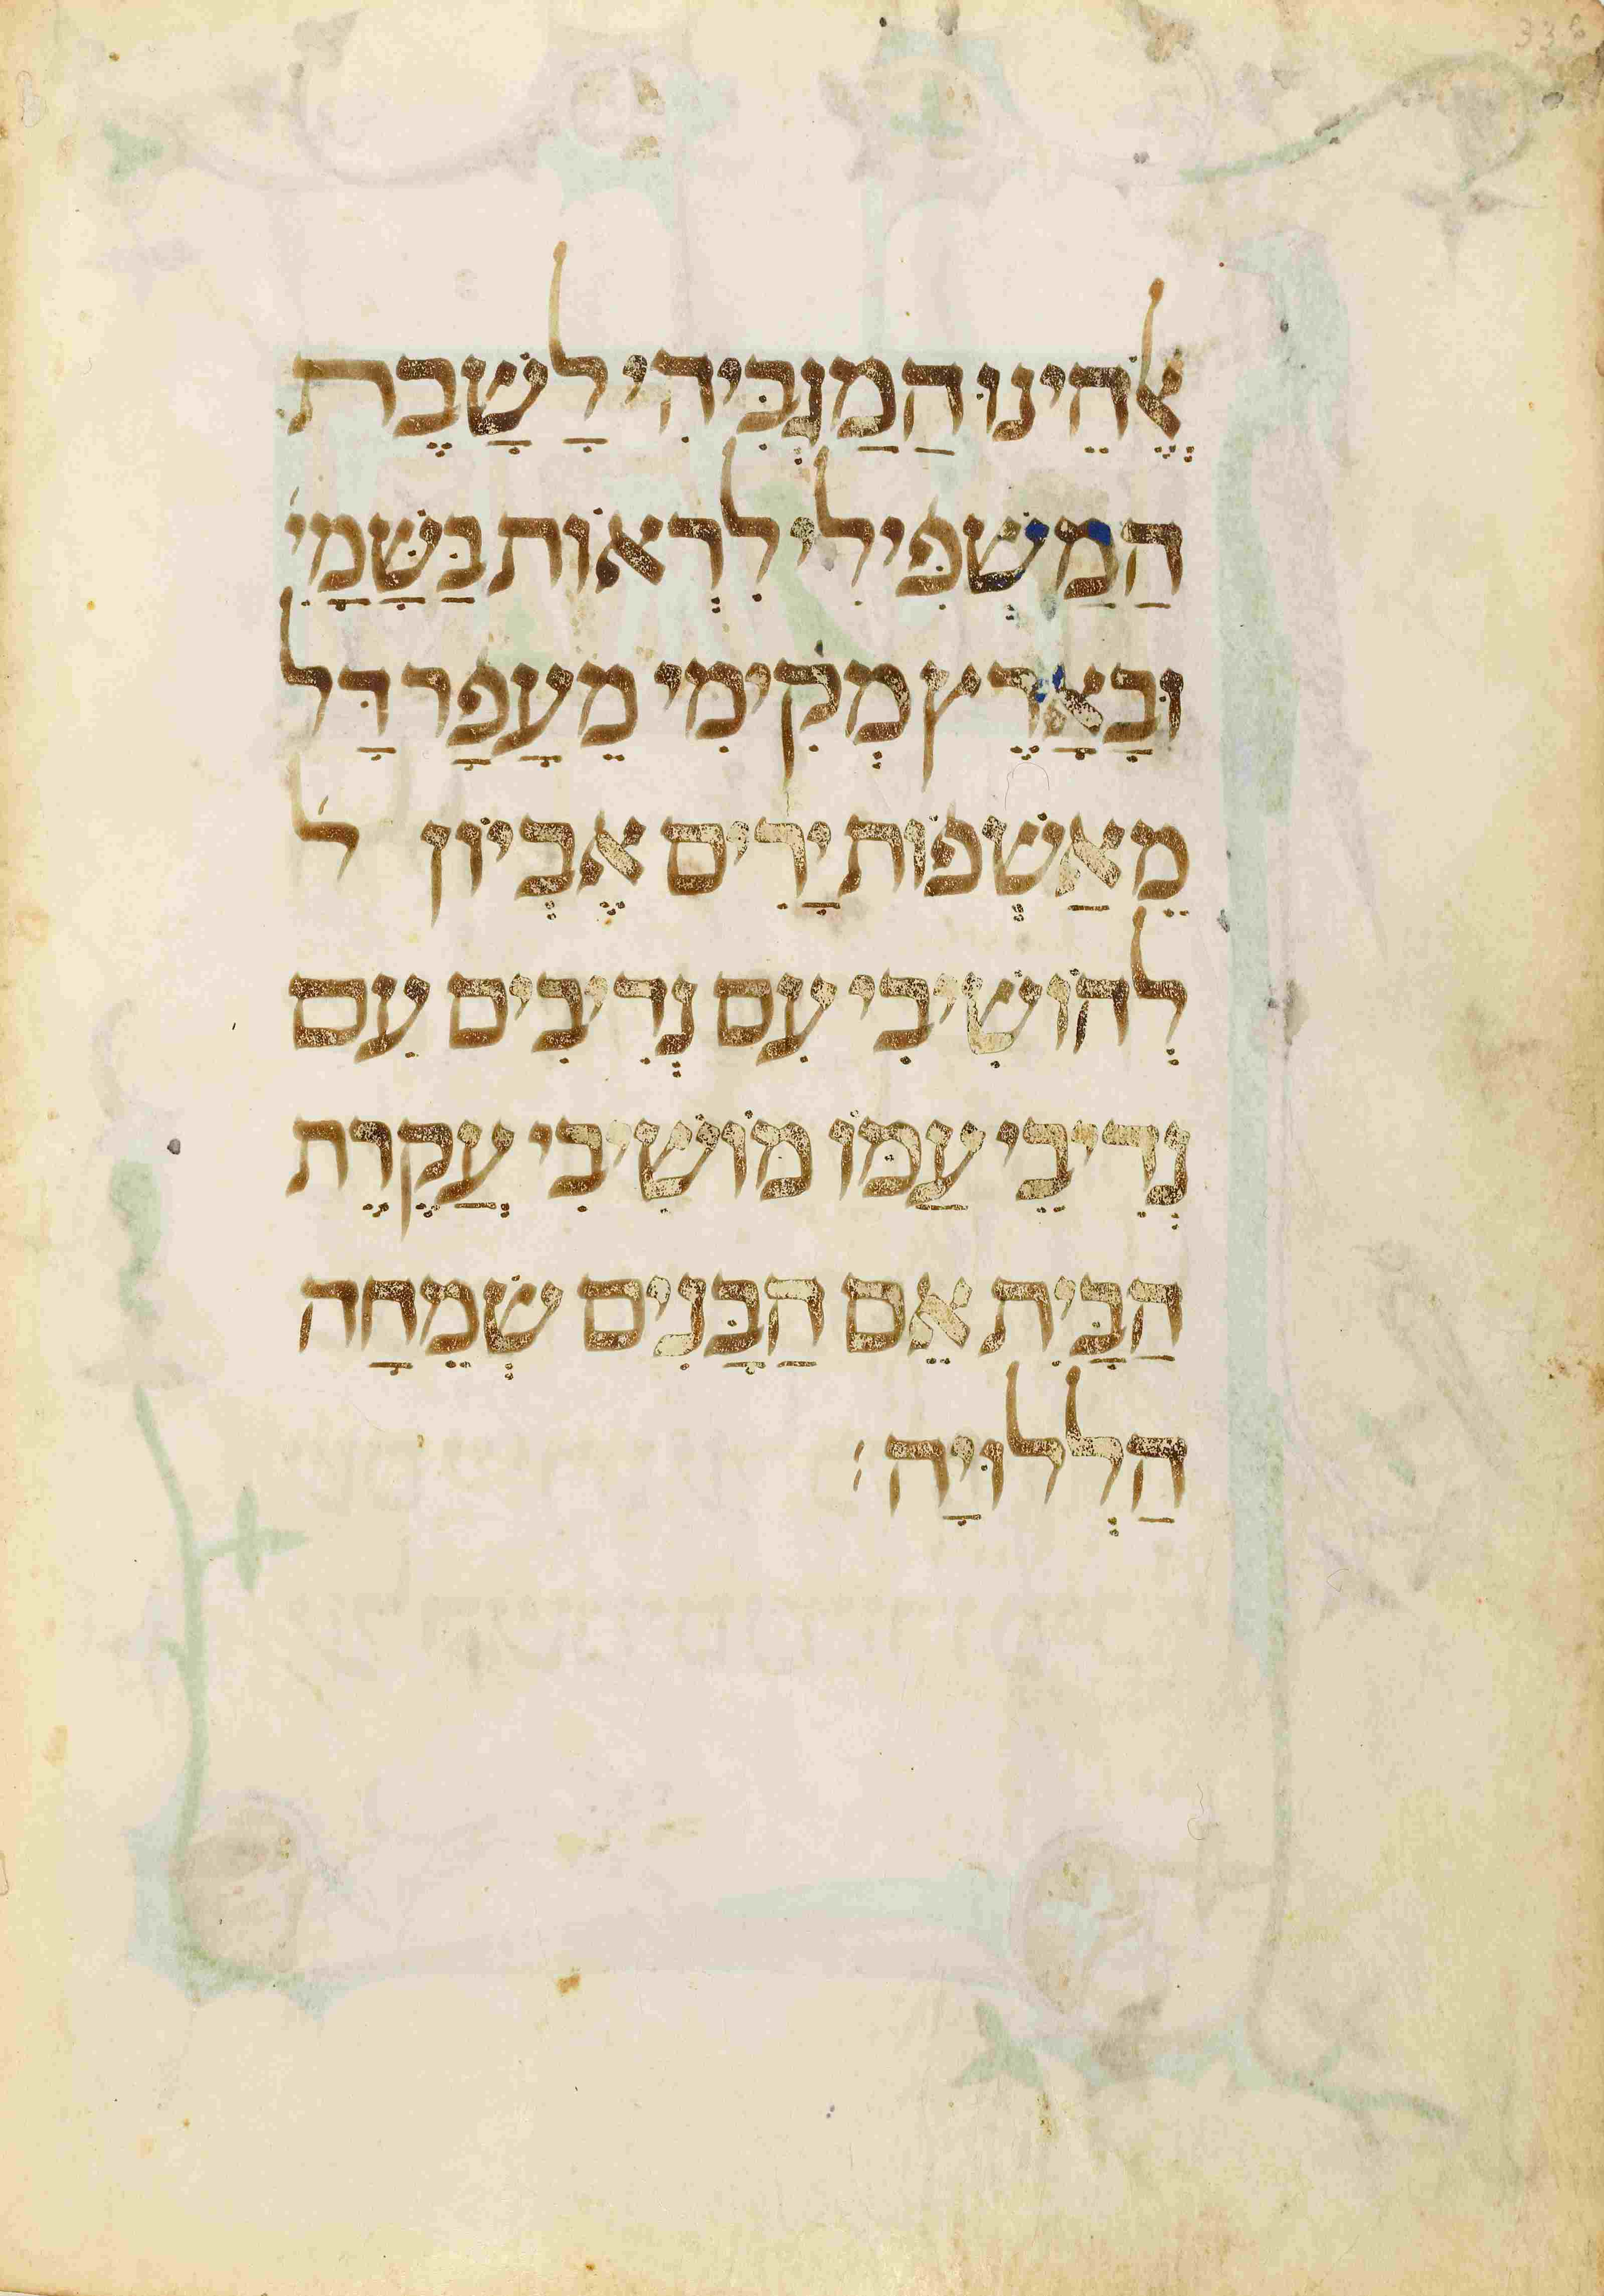 אֱלֹהֵינוּ הַמַגְבִּיהִי לָשָׁבֶת
הַמַשְׁפִּילִי לִרְאוֹת בַּשָּׁמַיִ
וּבָאָרֶץ מְקִימִי מֵעָפָר דָּל
מֵאַשְׁפּוֹת יָרִים אֶבְיוֹן ל
לְהוֹשִׁיבִי עִם נְדִיבִים עִם
נְדִיבֵי עַמּוֹ מוֹשִׁיבִי עֲקֶרֶת
הַבַּיִת אֵם הַבָּנִים שְׂמֵחָה
הַלְלוּיָהּ׃